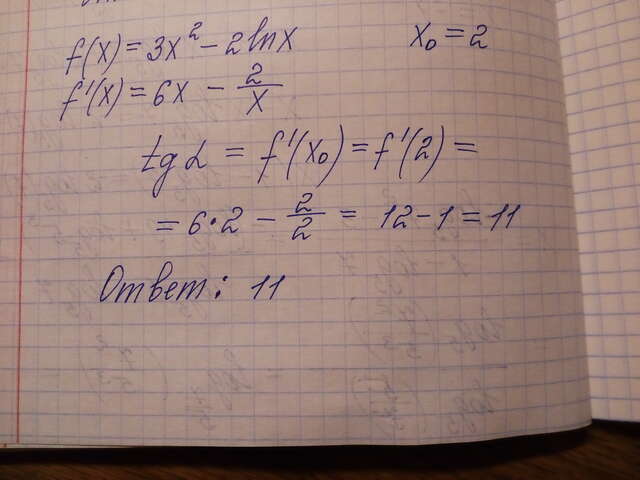 f(x) = 3x² - 2lnx    x₀ = 2
f'(x) = 6x - 2/x
tg α = f'(x₀) = f'(2) =
= 6·2 - 2/2 = 12 - 1 = 11
Ответ: 11